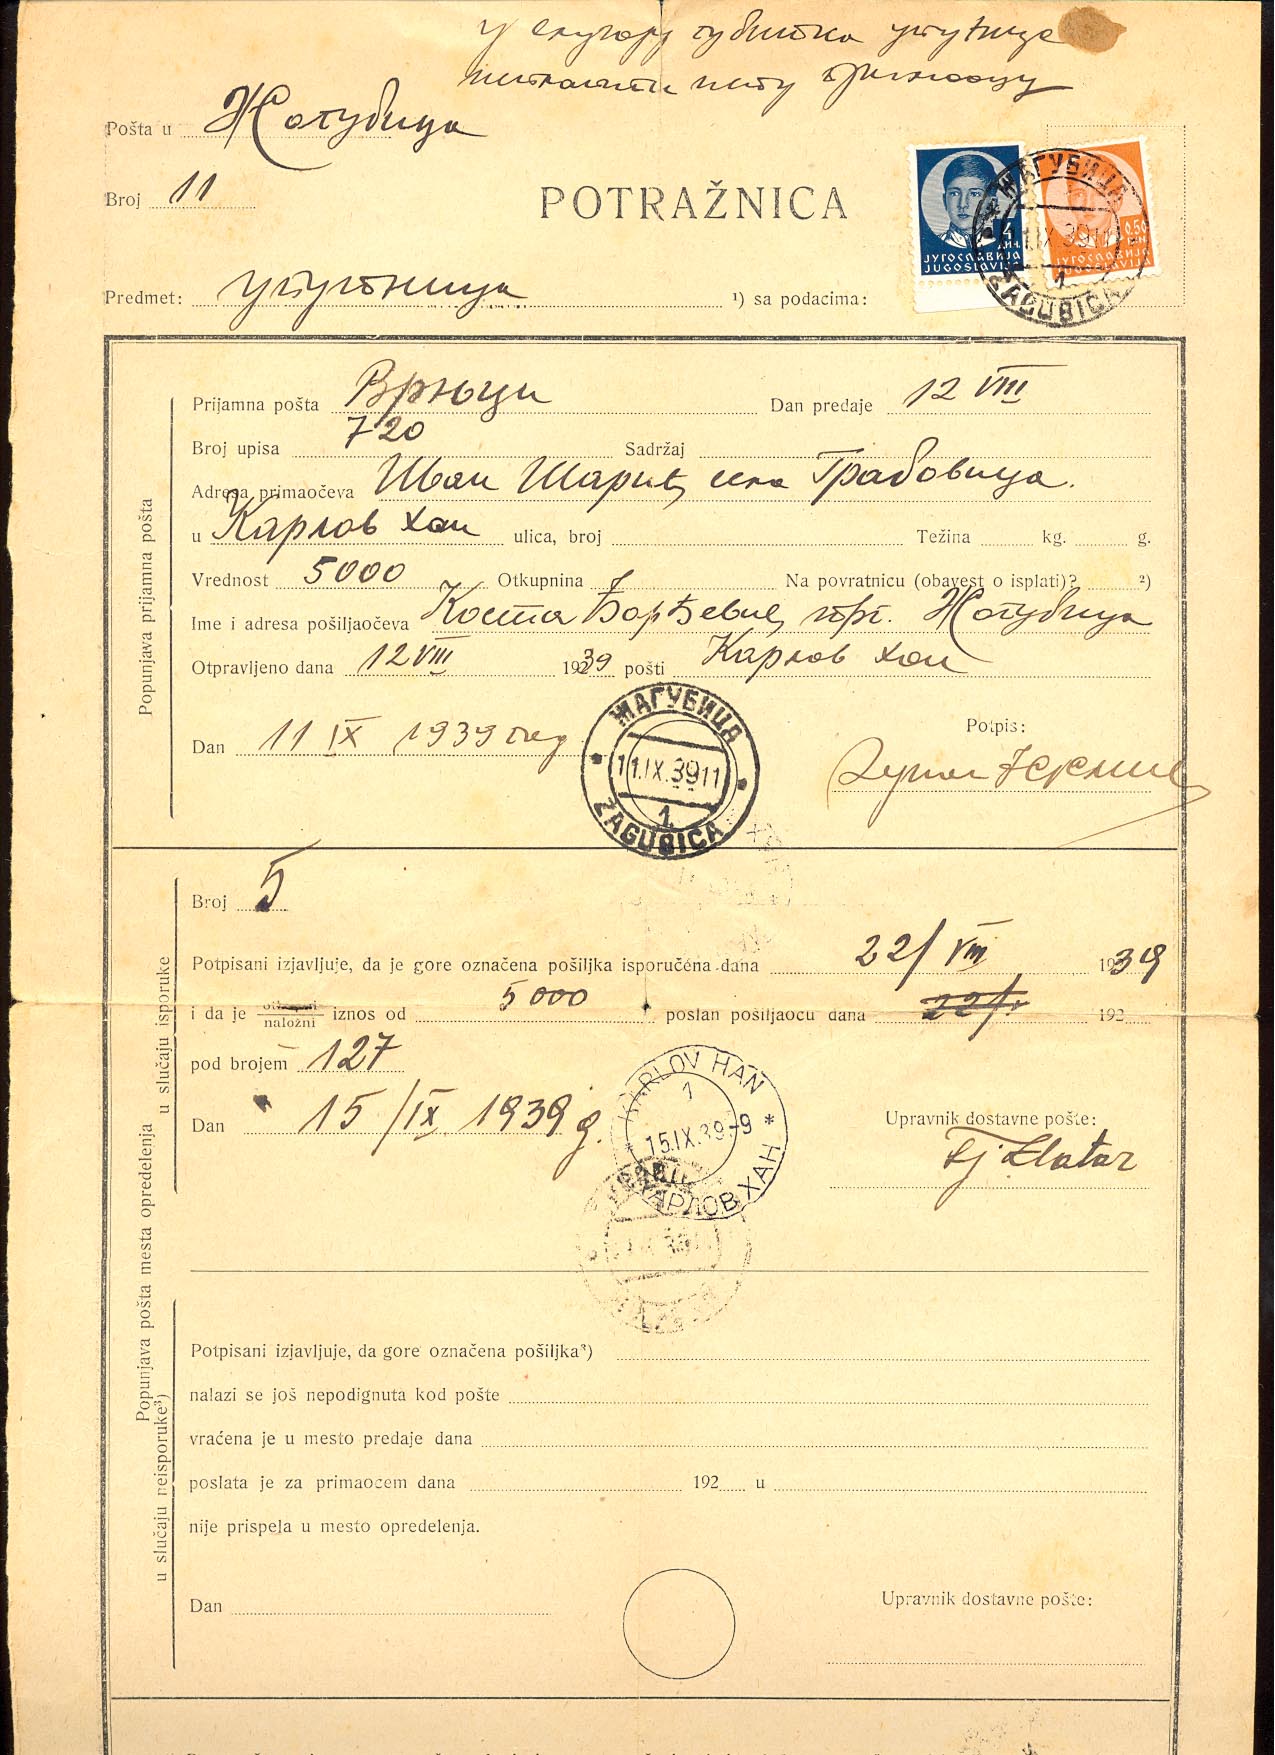 у случају губитка упутнице
Pošta u Жагубица
Broj 11
POTRAŽNICA
4 ДИН.
ЈУГОСЛАВИЈА
JUGOSLAVIJA
0.50
ДИН.
ЈУГОСЛАВИЈА
JUGOSLAVIJA
ЖАГУБИЦА
11.IX.39 11
1
ŽAGUBICA
Predmet: упутница ¹) sa podacima:
Popunjava prijamna pošta
Prijamna pošta Врњци Dan predaje 12 VIII
Broj upisa 720 Sadržaj
Adresa primaočeva Иван Шарић, село Грабовица.
u Карлов хан ulica, broj Težina kg. g.
Vrednost 5000 Otkupnina Na povratnicu (obavest o isplati)? ²)
Ime i adresa pošiljaočeva Коста Ђорђевић, трг. Жагубица
Otpravljeno dana 12 VIII 19239 pošti Карлов хан
Dan 11 IX 1939 год
Potpis:
ЖАГУБИЦА
11.IX.39 11
1
ŽAGUBICA
Popunjava pošta mesta opredelenja
u slučaju isporuke
Broj 5
Potpisani izjavljuje, da je gore označena pošiljka isporučena dana 22/VIII 1939
i da je naložni iznos od 5000 poslan pošiljaocu dana 192
pod brojem 127
Dan 15/IX 1939 g.
KARLOV HAN
1
15.IX.39-9
КАРЛОВ ХАН
Upravnik dostavne pošte:
Lj Zlatar
u slučaju neisporuke³)
Potpisani izjavljuje, da gore označena pošiljka³)
nalazi se još nepodignuta kod pošte
vraćena je u mesto predaje dana
poslata je za primaocem dana 192 u
nije prispela u mesto opredelenja.
Dan
Upravnik dostavne pošte: